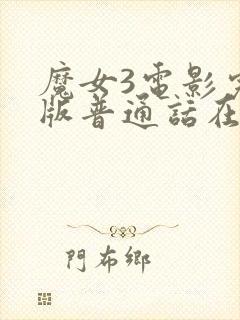 魔女3電影
版普通話在
門布鄉